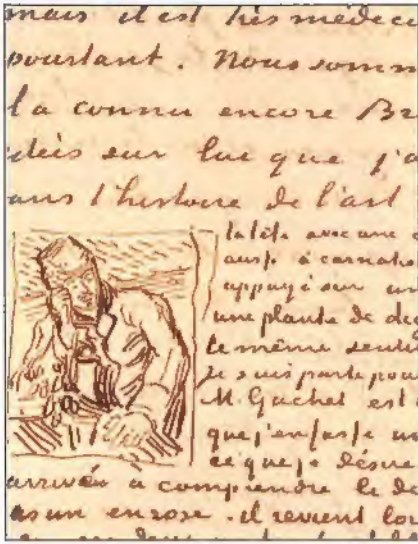 mais il est très médeci
pourtant. Nous somm
l'a connu encore Br
idées sur lui que j'a
ans l'histoire de l'art
la tête avec une c
appuyé sur un
une plante de dig
le même senti
je suis parti pou
M. Gachet est
que j'en fasse un
ce que je désire
arrivé à comprendre le de
as un en rose. il revient lor